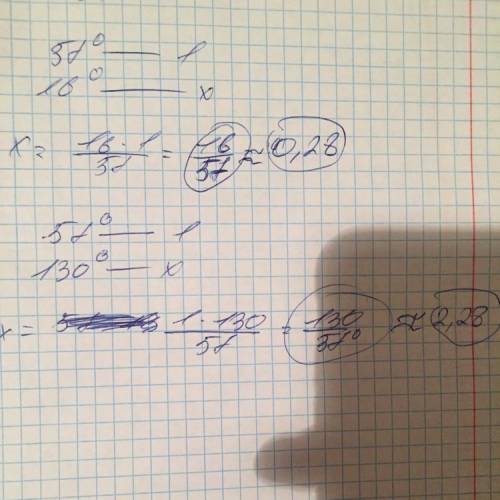 57° — 1
16° — x
x = 16·1/57 = 16/57 ≈ 0,28
57° — 1
130° — x
x = 1·130/57 = 130/57° ≈ 2,28